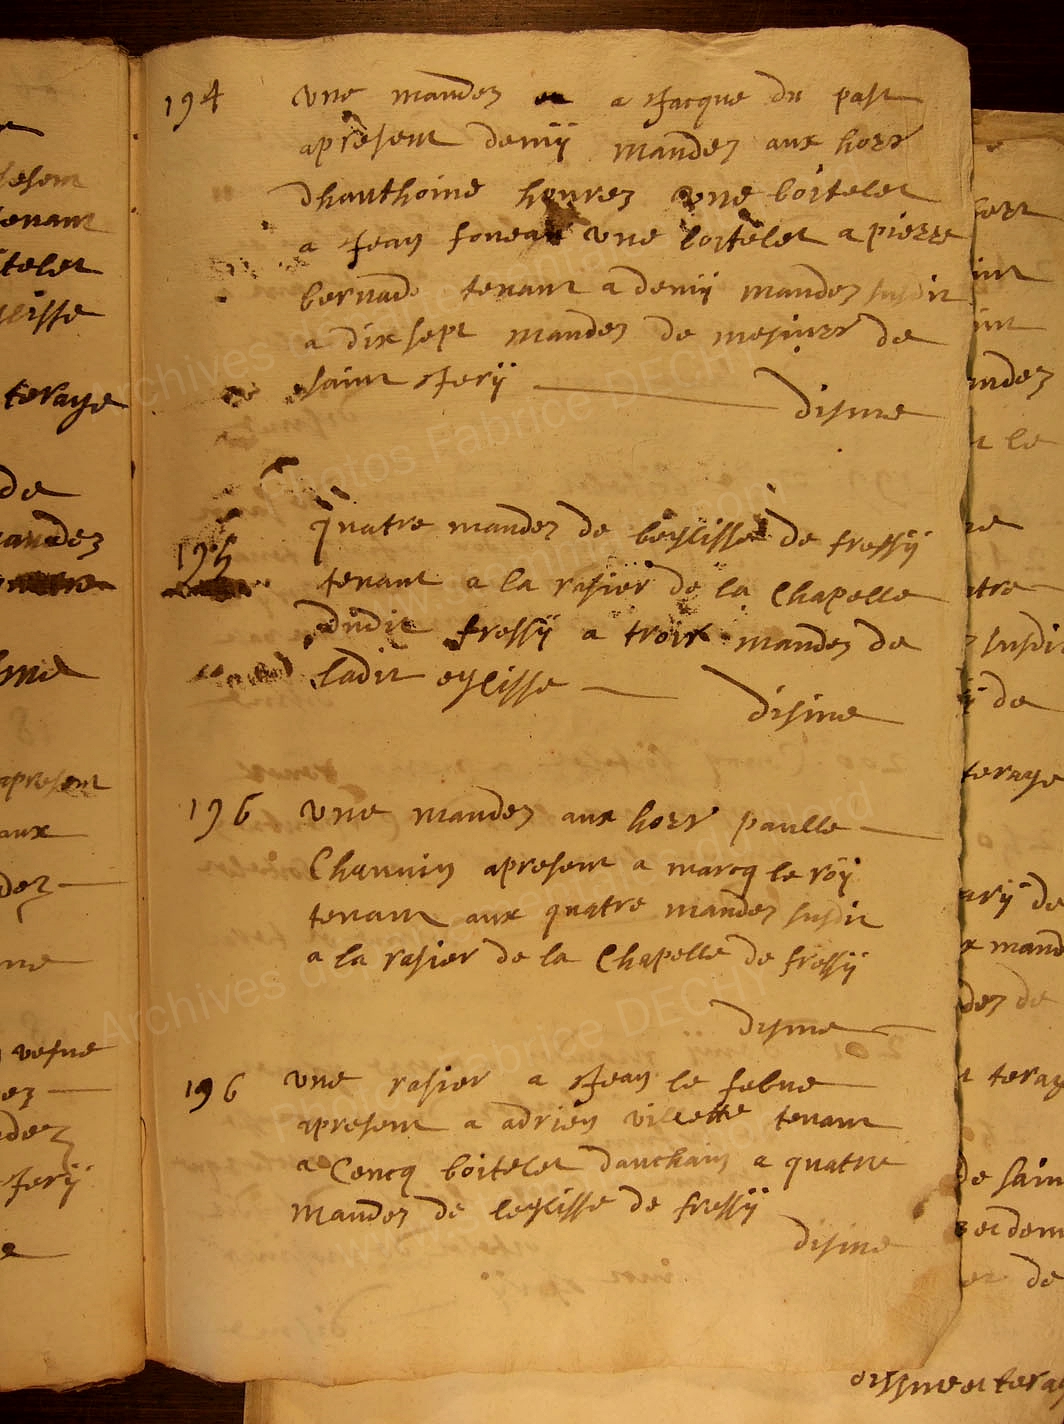 194 une mandez et a Jacque du past
apresent demÿ mandez aux hoer
dhanthoine hourez une boitelet
a Jean foneau une boitelet a pierre
bernade tenant a demÿ mandez susdit
a dix sept mandez de mesiuer de
saint Jerÿ
disme
195 quatre mandez de leglisse de fressÿ
tenant a la rasier de la Chapelle
dudit fressÿ a troix mandez de
ladit eglisse
disme
196 une mandez aux hoer paulle
Chauuin apresent a marcq le röÿ
tenant aux quatre mandez susdit
a la rasier de la Chapelle de fressÿ
disme
196 une rasier a Jean le febue
apresent a adrien villette tenant
a Cencq boitelet dauchain a quatre
mandez de leglisse de fressÿ
disme
teraye
de
mandez
apresent
aux
vefue
Jerÿ
mandez
susdit
de
teraye
de
disme et teraye